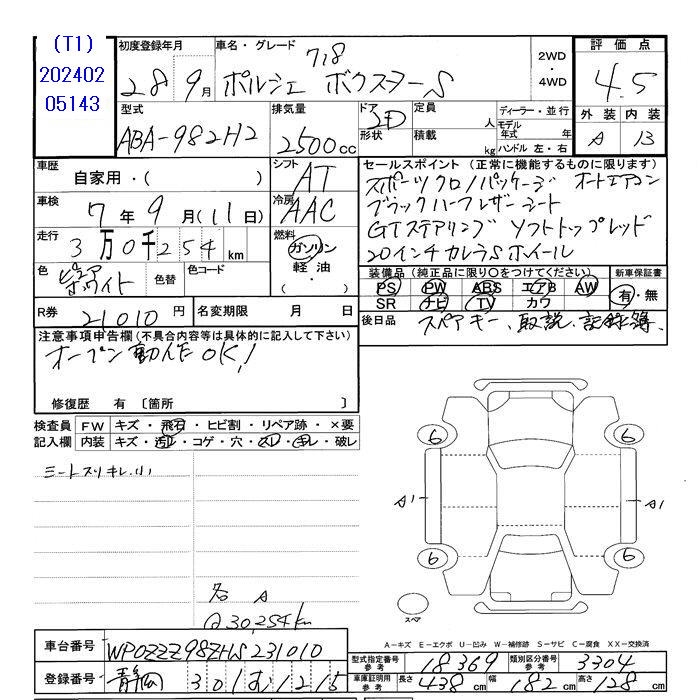 (T1)
202402
05143
初度登録年月
28年9月
車名・グレード
718
ポルシェ ボクスターS
2WD
・
4WD
評価点
4.5
外装 内装
A B
型式
ABA-982H2
排気量
2500cc
ドア 2D
形状
定員 人
積載 kg
ディーラー・並行
モデル
年式 年
ハンドル 左・右
車歴
自家用・( )
シフト
AT
車検
7年9月(11日)
冷房
AAC
走行
3万0千254km
燃料
ガソリン
軽油
・( )
色
ピュアホワイト
色替
色コード
R券
21010円
名変期限 月 日
セールスポイント(正常に機能するものに限ります)
スポーツクロノパッケージ オートエアコン
ブラックハーフレザーシート
GTステアリング ソフトトップレッド
20インチカレラSホイール
装備品(純正品に限り○をつけてください)
PS PW ABS エアB AW
SR ナビ TV カワ
新車保証書
有・無
後日品 スペアキー、取説、記録簿
注意事項申告欄(不具合内容等は具体的に記入して下さい)
オープン動作OK!
修復歴 有〔箇所 〕
検査員 FW キズ・飛石・ヒビ割・リペア跡・×要
記入欄 内装 キズ・汚レ・コゲ・穴・スレ・キレ・破レ
シートスリキレ小
6 6
A1 A1
6 6
スペア
@30,254km
A-キズ E-エクボ U-凹み W-補修跡 S-サビ C-腐食 XX-交換済
車台番号 WP0ZZZ98ZHS231010
登録番号 静岡 301 す 1215
型式指定番号
参考
18369
類別区分番号
参考
3304
車庫証明用
参考
長さ 438cm 幅 182cm 高さ 128cm